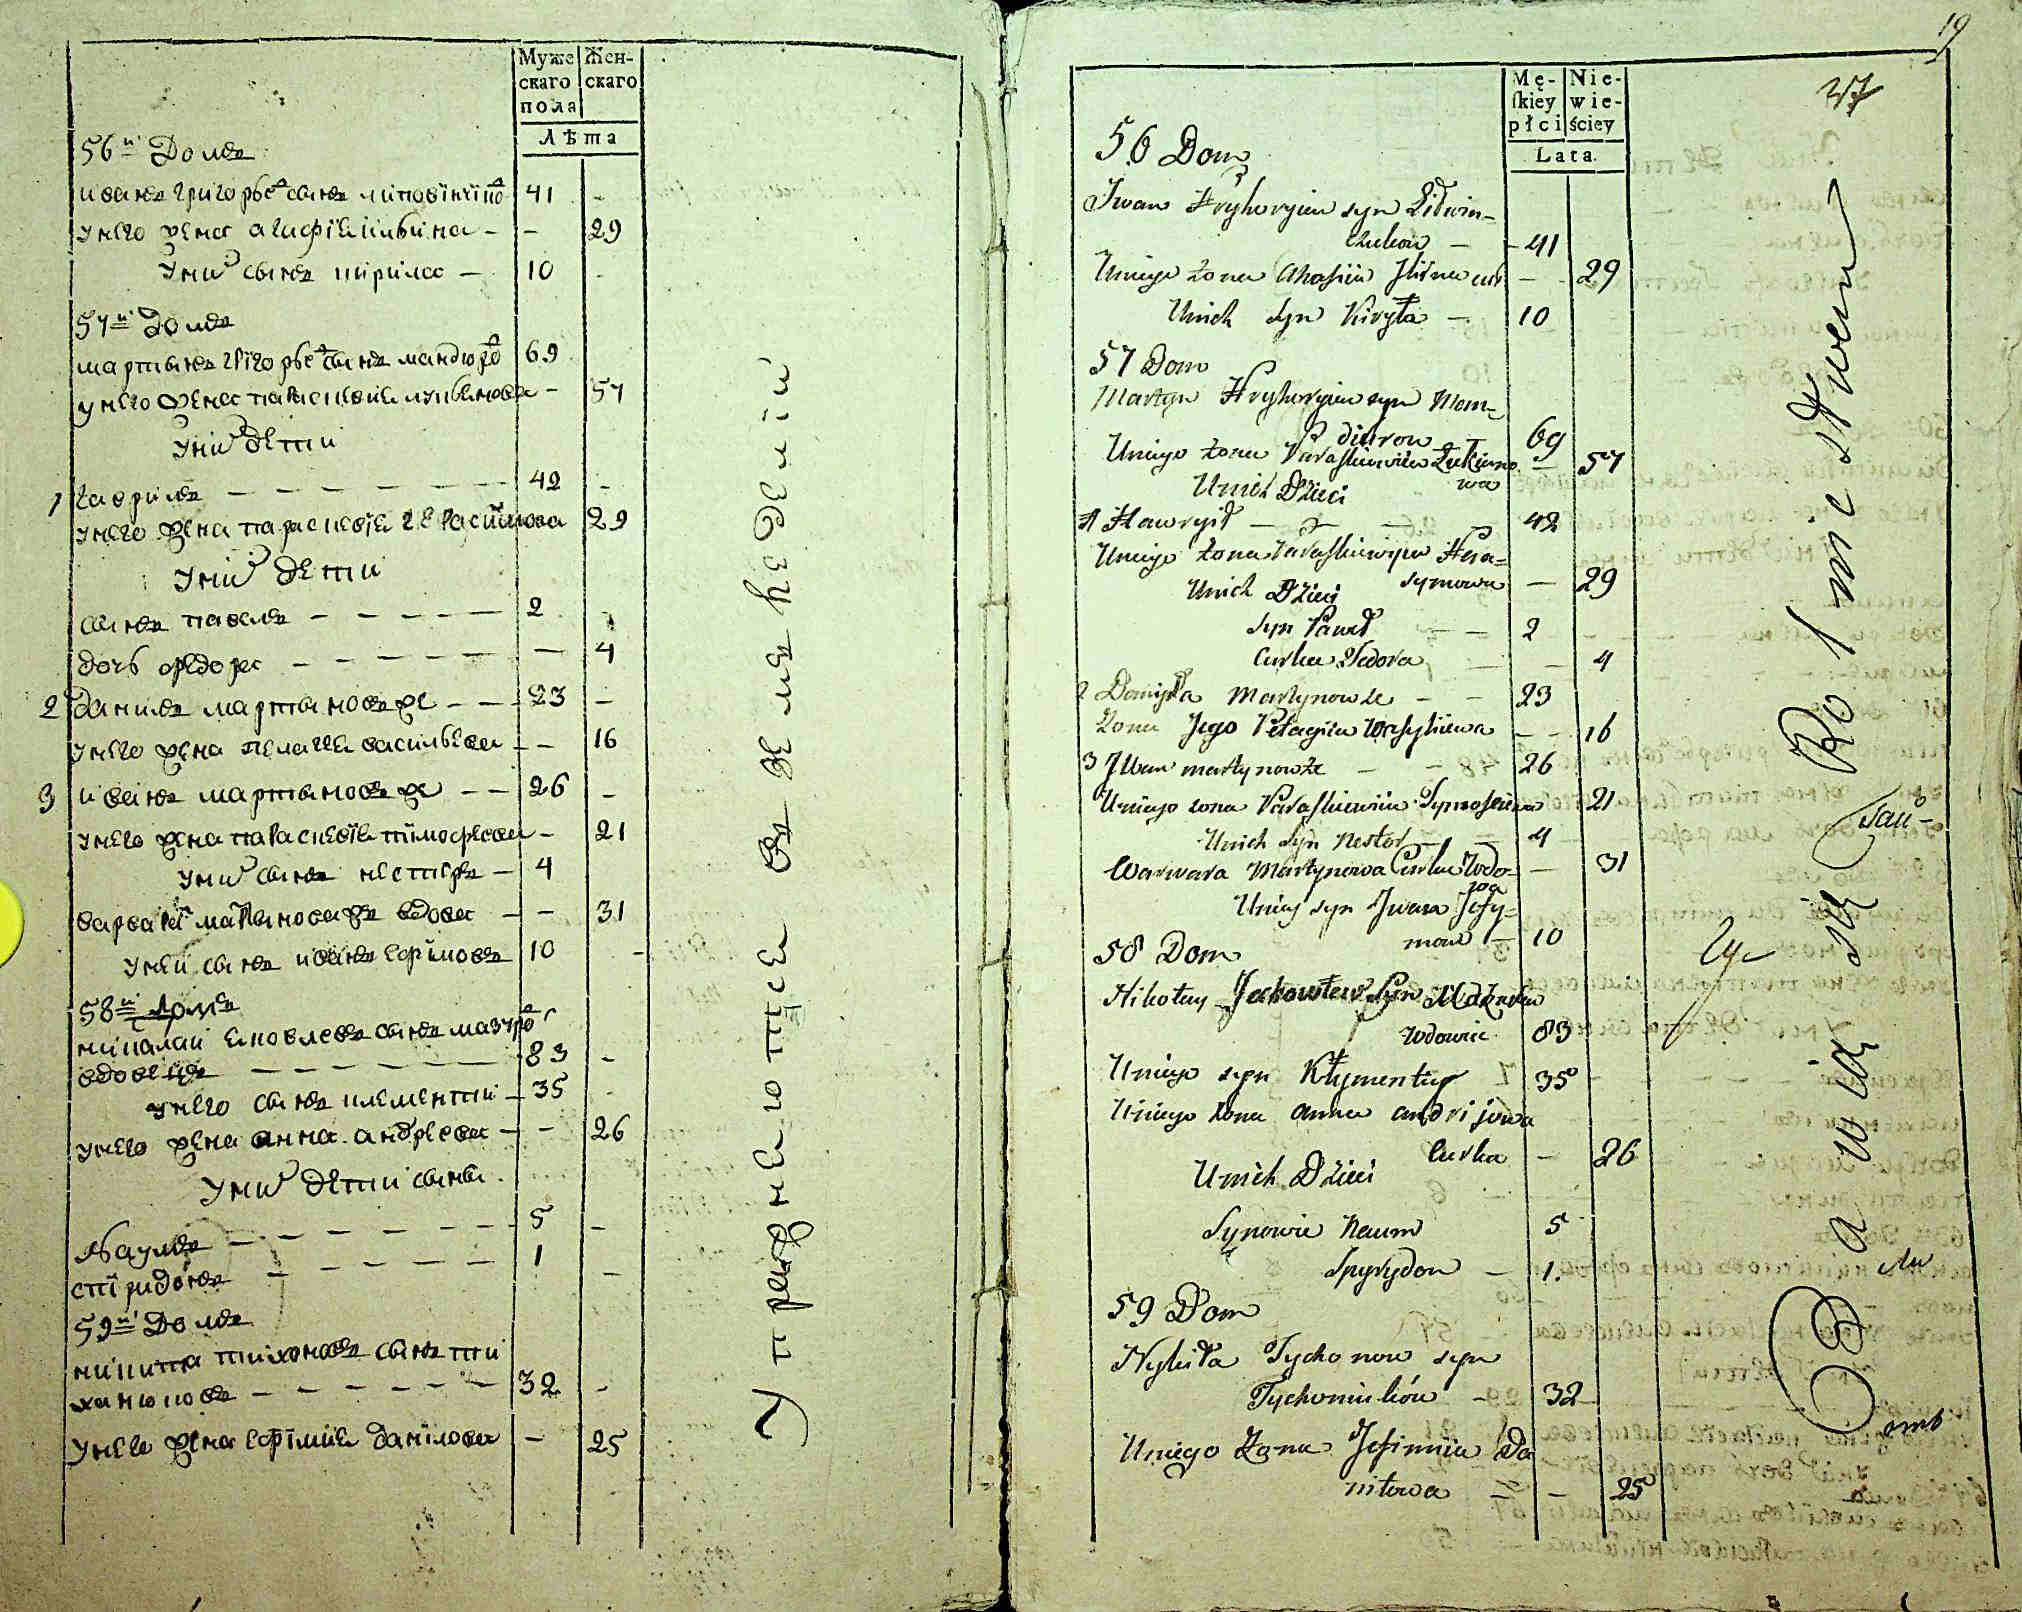 Муже
скаго
пола
Жен-
скаго
Лѣта
56й Домъ
иванъ григорьевъ сынъ литовїнчуковъ 41 -
у него жена агафїя ильина - - 29
у них сынъ кирила - 10 -
57й Домъ
мартынъ григорьевъ сынъ мандюровъ 69
у него жена параскевия лукьянова - 57
у них дети
1 гаврила - - - - - - 42 -
у него жена параскевїя герасимова 29
у них дети
сынъ павелъ - - - - - 2 -
дочь федора - - - - - - 4
2 данила мартыновъ же - - - 23 -
у него жена пелагея васильева - - 16
3 иванъ мартыновъ же - - 26 -
у него жена параскевїя тимофеева - 21
у них сынъ нестеръ - 4
варвара мартынова же вдова - - 31
у ней сынъ иванъ ефимовъ 10 -
58й Домъ
николай яковлевъ сынъ мазуръ
вдовецъ - - - - - - 83 -
у него сынъ климентий - 35 -
у него жена анна андреева - - 26
у них дети сыны
наумъ - - - - - - 5 -
спиридонъ - - - - - 1 -
59й Домъ
никита тихоновъ сынъ ти
ханюковъ - - - - - - 32 -
у него жена ефимия данилова - 25
Упражнеютца въ земъ неделїи
19
37
Mę-
skiey
płci
Nie-
wie-
ściey
Lata.
56 Dom
Jwan Hryhoryiew syn Litwin-
czukow - - 41
Uniego żona Ahafiia Jlina cur - - 29
Unich syn Kiryła - 10
57 Dom
Martyn Hryhoryiew syn Man-
diurow 69
Uniego żona Paraskiewiia Łukiano - 57
wa
Unich Dzieci
1 Hawryił - - - 42
Uniego żona Paraskiewiia Hera-
symowa - 29
Unich Dzieci
syn Paweł - - 2
Curka Fedora - 4
2 Daniyła Martynow że - - 23
Żona Jego Pełagiia Wasyliewa - - 16
3 Jwan martynow że - - 26
Uniego żona Paraskiewiia Tymofeiewa 21
Unich syn Nestor - 4
Warwara Martynowa Curka Wdo- - 31
wa
Uniey syn Jwan Jefy-
mow - 10
58 Dom
Nikołay Jakowlew Syn Mazurka
Wdowiec 83
Uniego syn Kłymentiy 35
Uniego żona anna andrijowa
Curka - 26
Unich Dzieci
Synowie Naum 5
Spyrydon - 1.
59 Dom
Nykita Tychonow syn
Tychoniukow - 32
Uniego Żona Jefimiia Da
niłowa - - 25
Bawią się Rolnictwem